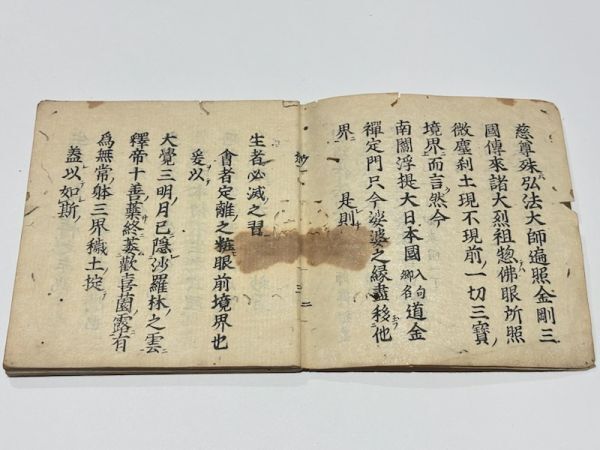 慈尊殊弘法大師遍照金剛三
國傳來諸大烈祖惣佛眼所照
微塵刹土現不現前一切三寳
境界而言然今
南閻浮提大日本國入句郷名道金
禪定門只今娑婆之縁盡移他
界 是則
生者必滅之習
會者定離之粧眼前境界也
爰以
大覺三明月已隱沙羅林之雲
釋帝十善蘂終萎歡喜薗露有
為無常躰三界穢土掟
蓋以如斯